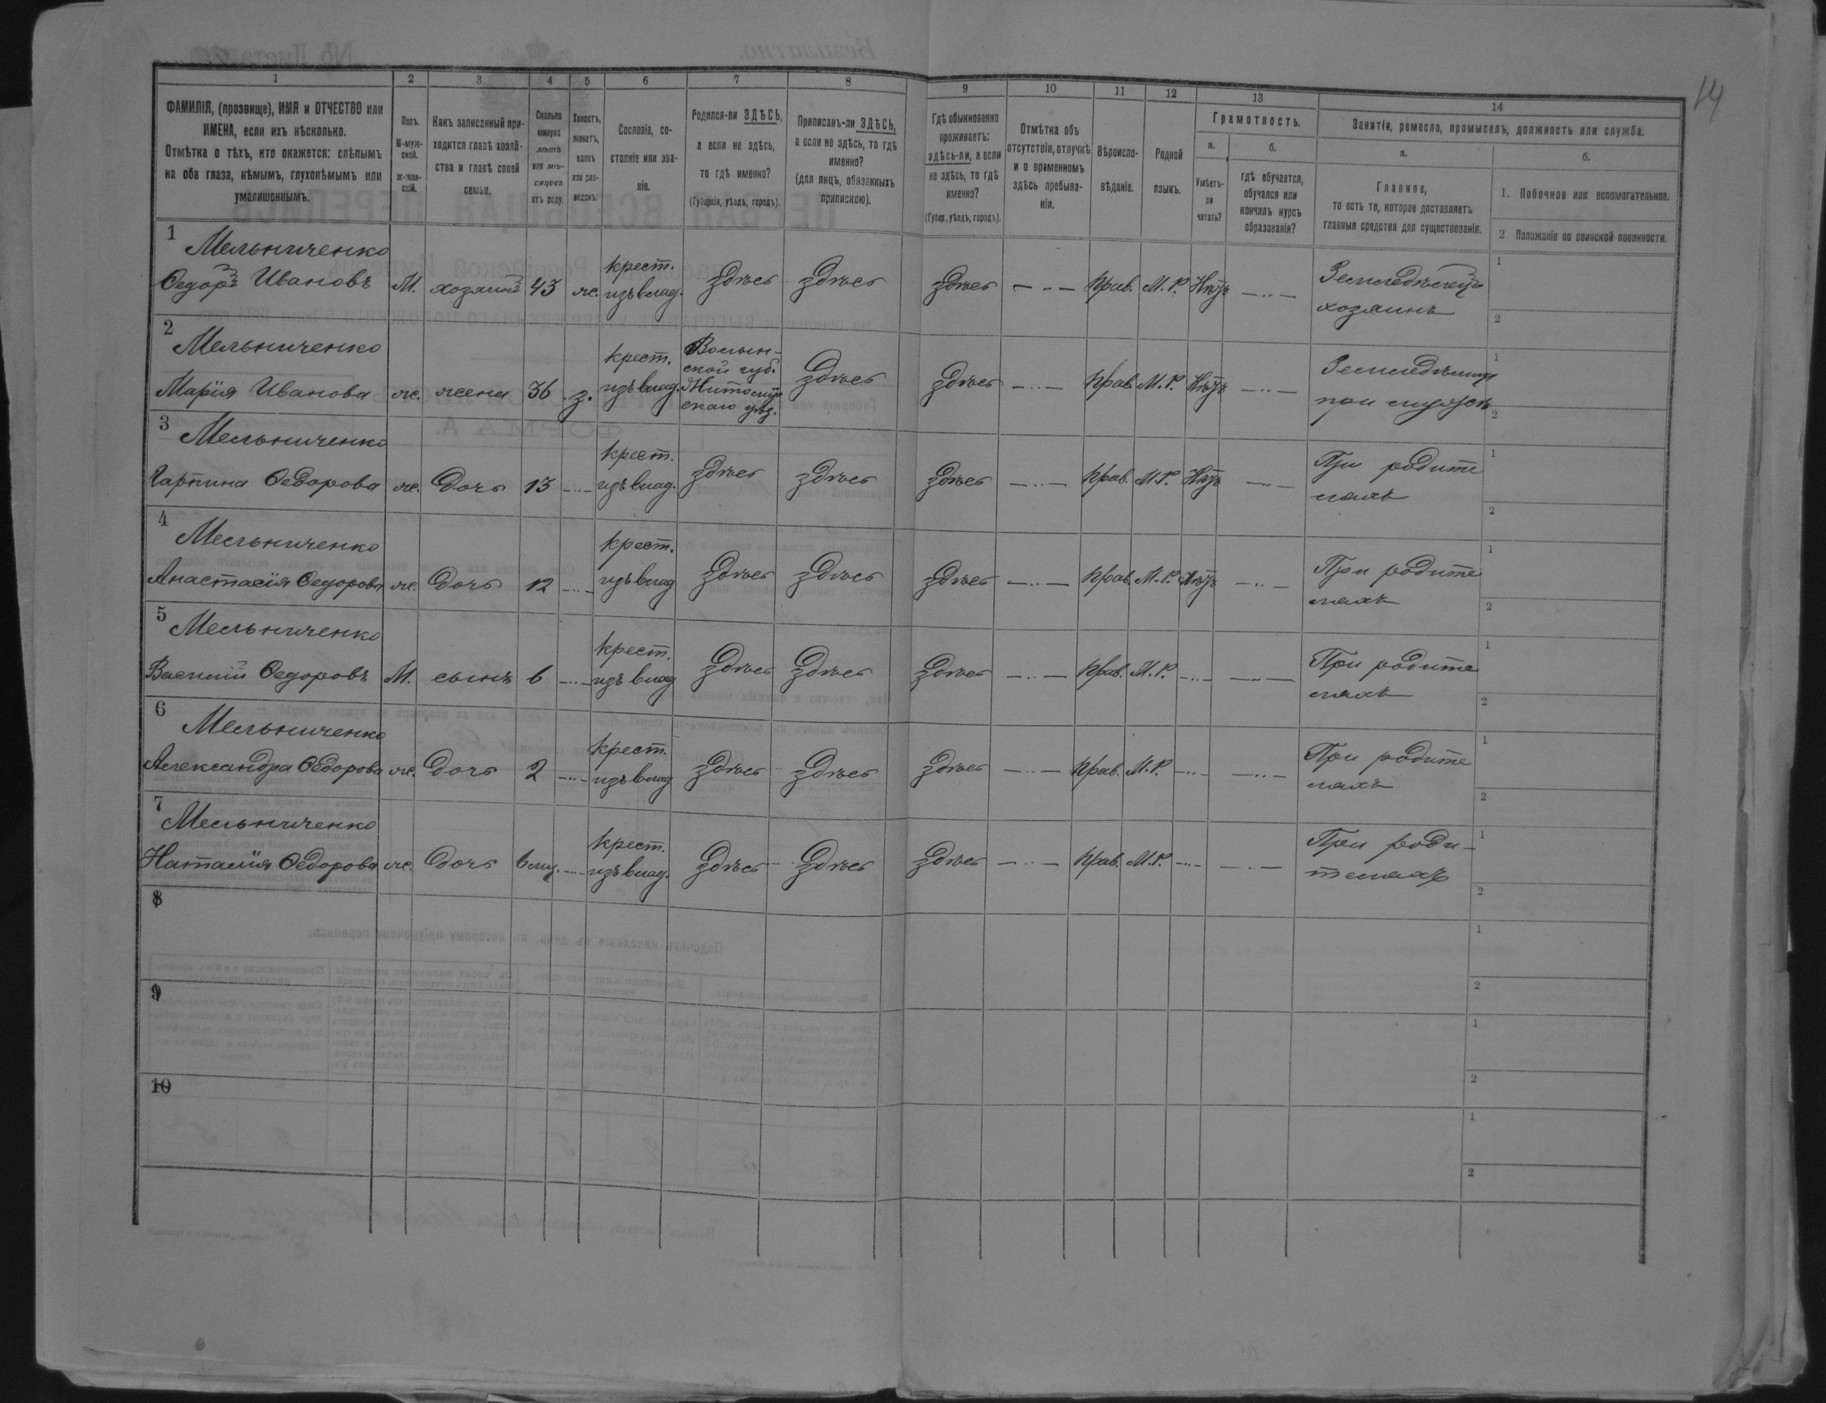 14
1 2 3 4 5 6 7 8 9 10 11 12 13 14
ФАМИЛІЯ, (прозвище), ИМЯ и ОТЧЕСТВО или
ИМЕНА, если ихъ нѣсколько.
Отмѣтка о тѣхъ, кто окажется: слѣпымъ
на оба глаза, нѣмымъ, глухонѣмымъ или
умалишоннымъ.
Полъ.
М-муж-
ской.
ж-жен-
скій.
Какъ записанный при-
ходится главѣ хозяй-
ства и главѣ своей
семьи.
Сколько
минуло
лѣтъ
или мѣ-
сяцевъ
отъ роду.
Холостъ,
женатъ,
вдовъ
или раз-
веденъ.
Сословіе, со-
стояніе или зва-
ніе.
Родился-ли ЗДѢСЬ,
а если не здѣсь,
то гдѣ именно?
(Губернія, уѣздъ, городъ).
Приписанъ-ли ЗДѢСЬ,
а если не здѣсь, то гдѣ
именно?
(для лицъ, обязанныхъ
припискою).
Гдѣ обыкновенно
проживаетъ:
здѣсь-ли, а если
не здѣсь, то гдѣ
именно?
(Губер., уѣздъ, городъ).
Отмѣтка объ
отсутствіи, отлучкѣ
и о временномъ
здѣсь пребыва-
ніи.
Вѣроиспо-
вѣданіе.
Родной
языкъ.
Грамотность.
а.
Умѣетъ-
ли
читать?
б.
гдѣ обучается,
обучался или
кончилъ курсъ
образованія?
Занятія, ремесло, промыселъ, должность или служба.
а.
Главное,
то есть то, которое доставляетъ
главныя средства для существованія.
б.
1. Побочное или вспомогательное.
2 Положеніе по воинской повинности.
1 Мельниченко крест. Земледѣлецъ 1
Ѳедоръ Ивановъ М. хозяинъ 43 ж. изъ влад. здѣсь здѣсь здѣсь Прав. М.Р. Нѣтъ хозяинъ 2
2 Мельниченко крест. Волын- Земледѣлица 1
ской губ.
Марія Иванова ж. жена 36 з. изъ влад. Житомір здѣсь здѣсь Прав. М.Р. Нѣтъ при мужѣ 2
скаго уѣз.
3 Мельниченко крест. При родите 1
Гарпина Ѳедорова ж. дочь 13 изъ влад. здѣсь здѣсь здѣсь Прав. М.Р. Нѣтъ ляхъ 2
4 Мельниченко крест. При родите 1
Анастасія Ѳедорова ж. дочь 12 изъ влад здѣсь здѣсь здѣсь Прав. М.Р. Нѣтъ ляхъ 2
5 Мельниченко крест. При родите 1
Василій Ѳедоровъ М. сынъ 6 изъ влад здѣсь здѣсь здѣсь Прав. М.Р. ляхъ 2
6 Мельниченко крест. При родите 1
Александра Ѳедорова ж. дочь 2 изъ влад здѣсь здѣсь здѣсь Прав. М.Р. ляхъ 2
7 Мельниченко крест. При роди- 1
Наталія Ѳедорова ж. дочь 6 мц. изъ влад. здѣсь здѣсь здѣсь Прав. М.Р. теляхъ 2
8 1
2
9 1
2
10 1
2